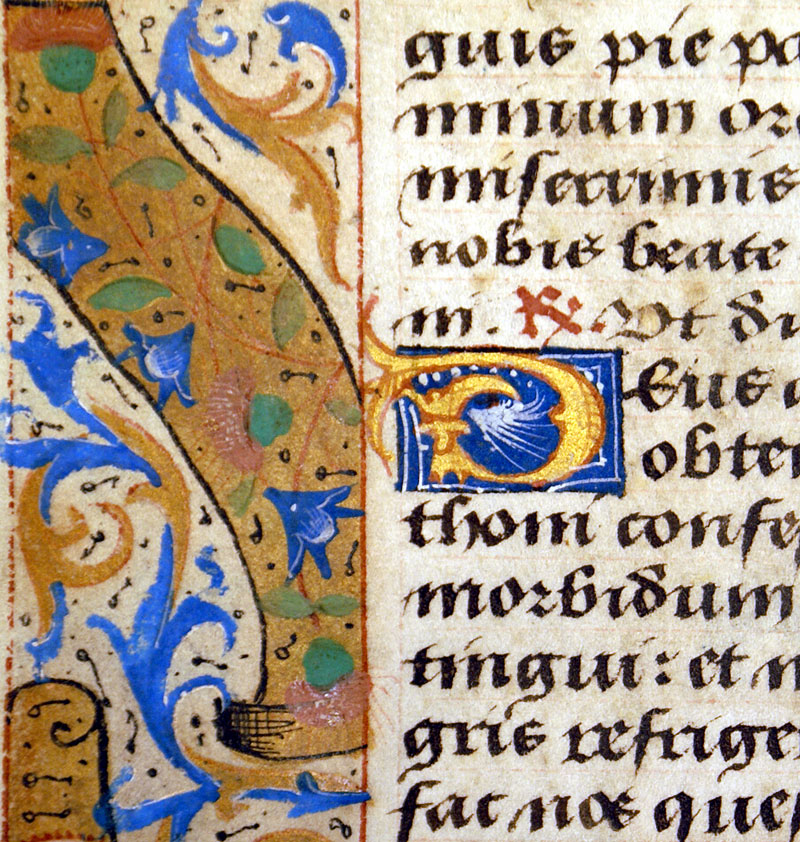 guis pie pa
minum ore
miserrimis
nobis beate
ni. R. Ut di
Deus
obten
thoni confes
morbidum
tingui: et
gris refrige
fac nos ques